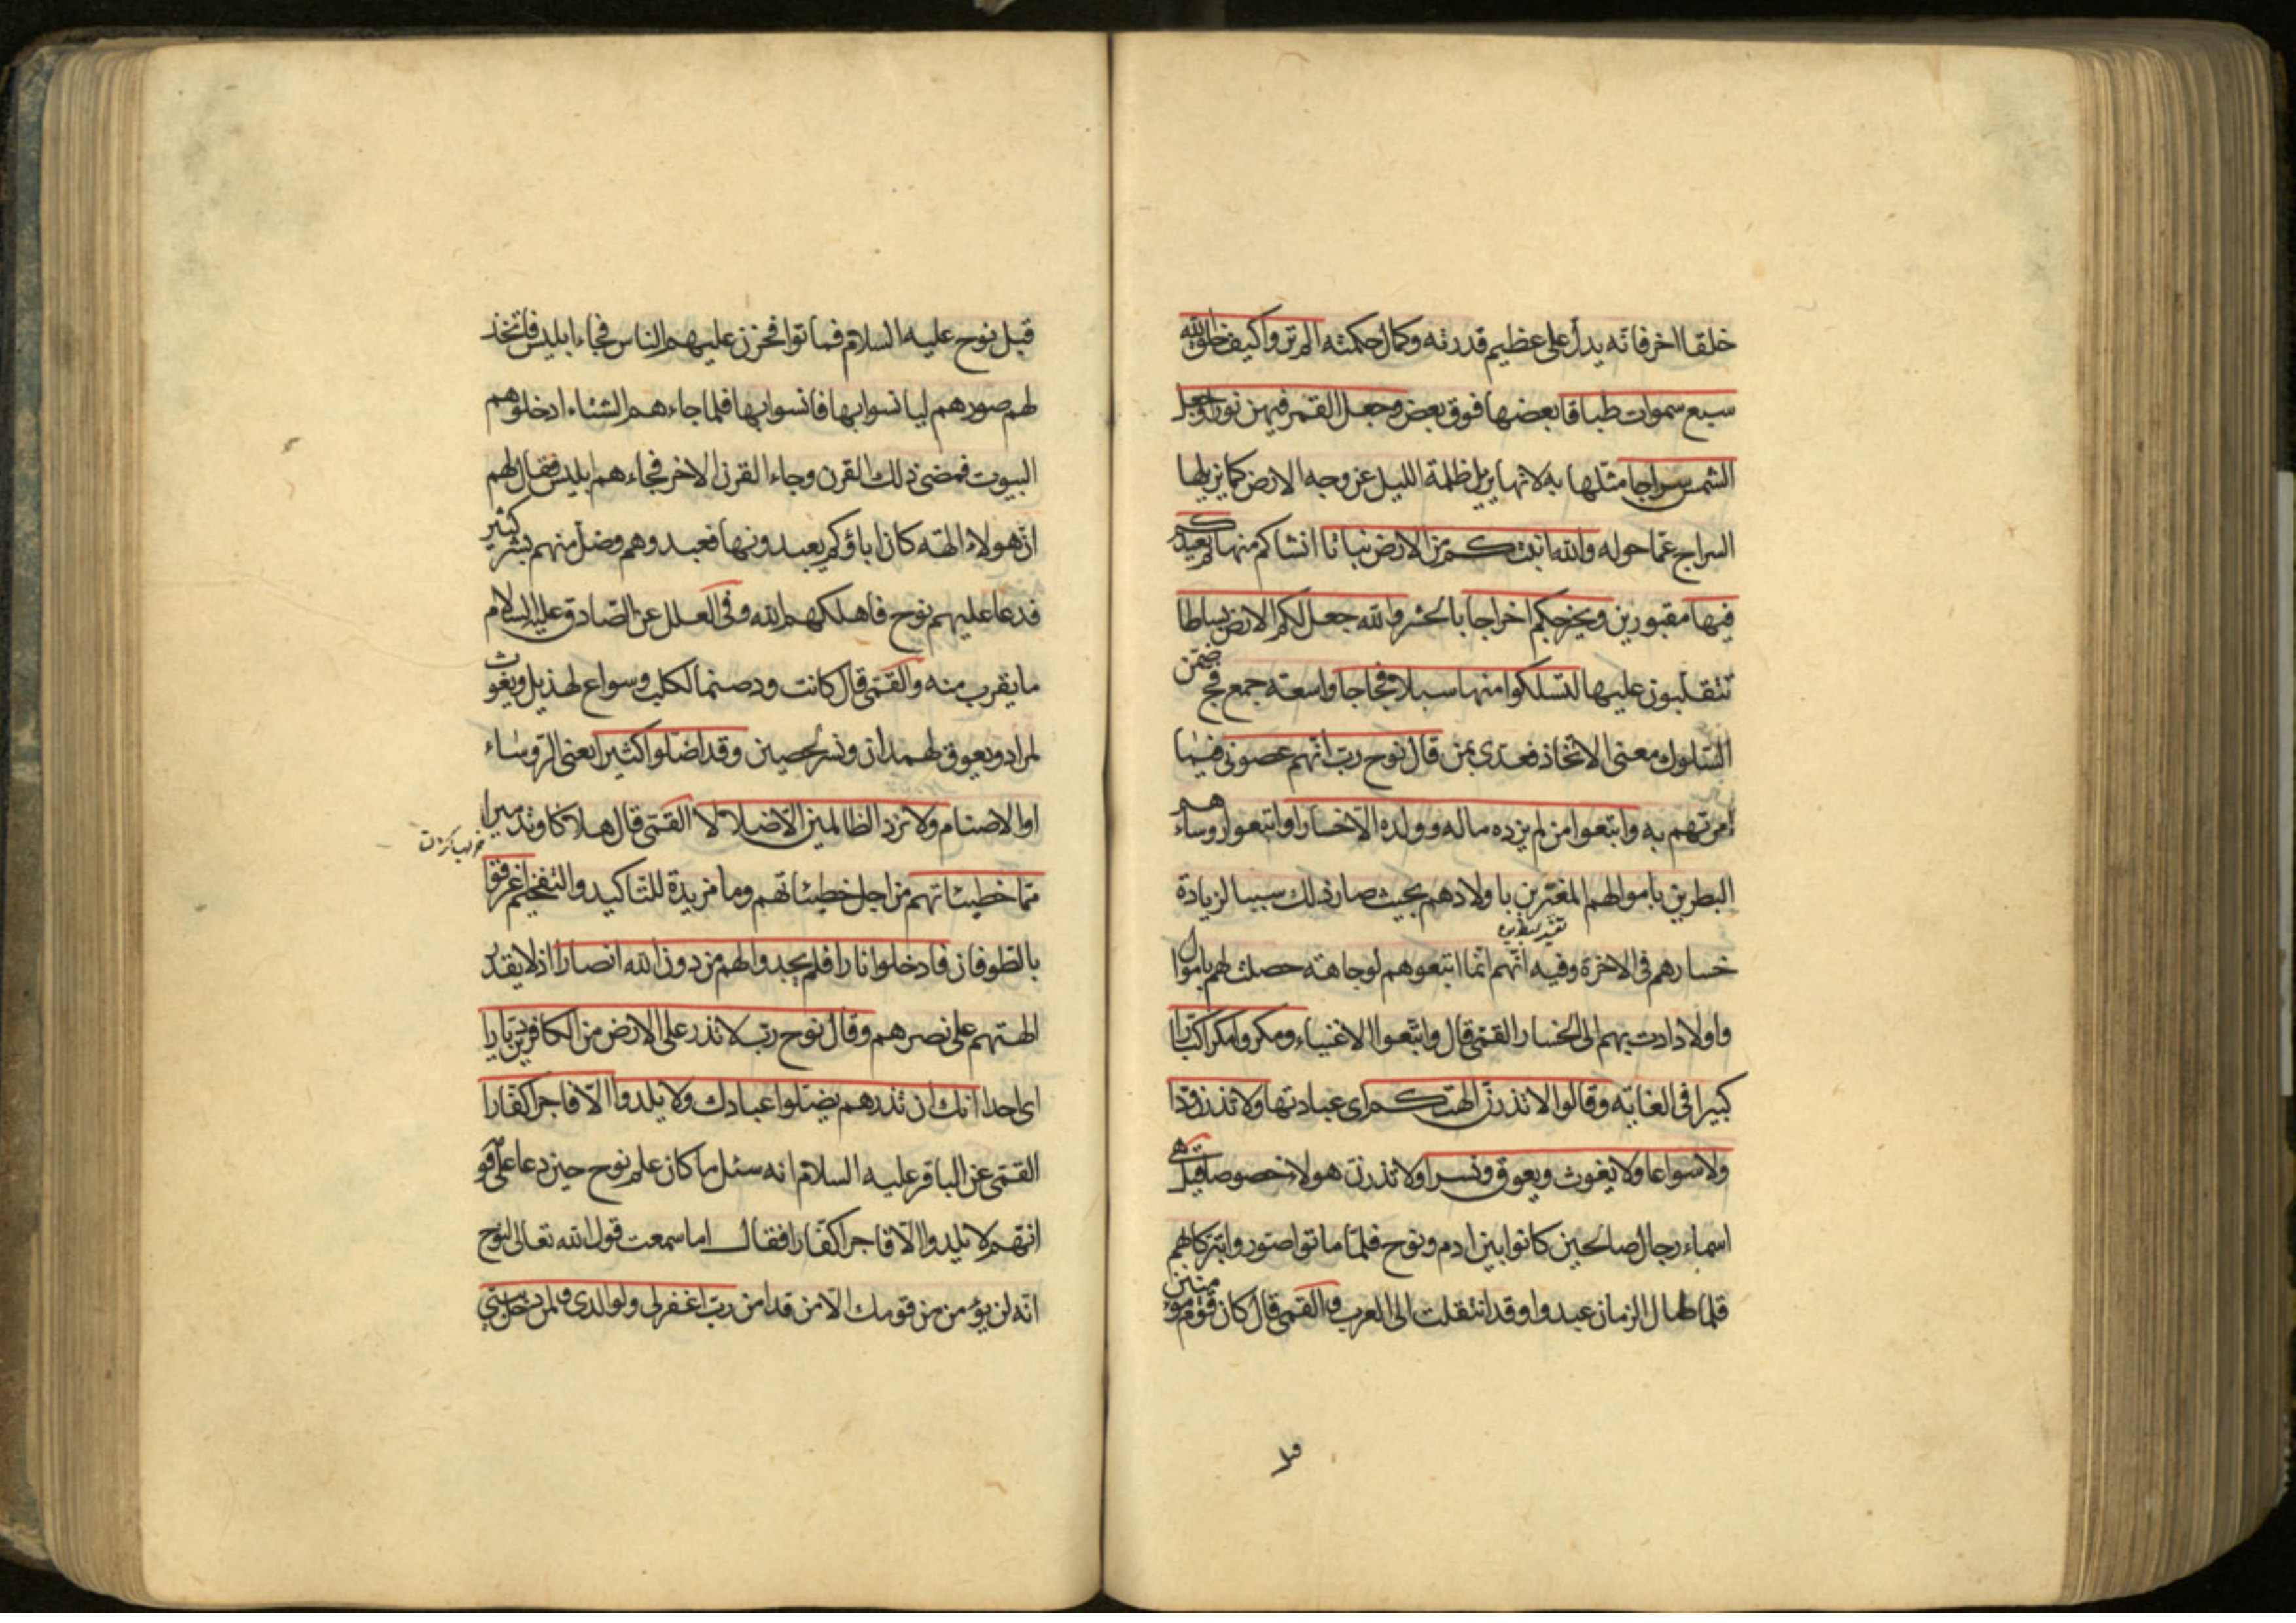 خلقا اخر فانه يدل على عظيم قدرته وكمال حكمته الم تروا كيف خلق الله
سبع سموات طباقا بعضها فوق بعض وجعل القمر فيهن نورا وجعل
الشمس سراجا مثلها به لانها يزيل ظلمة الليل عن وجه الارض كما يزيلها
السراج عما حوله والله انبتكم من الارض نباتا انشاكم منها ثم يعيدكم
فيها مقبورين ويخرجكم اخراجا بالحشر والله جعل لكم الارض بساطا
تتقلبون عليها لتسلكوا منها سبلا فجاجا واسعة جمع فج ضمن
السلوك معنى الاتخاذ فعدى بمن قال نوح رب انهم عصونى فيما
امرتهم به واتبعوا من لم يزده ماله وولده الا خسارا واتبعوا رؤساءهم
البطرين باموالهم المغترين باولادهم بحيث صار ذلك سببا لزيادة
خسارهم فى الاخرة وفيه انهم انما اتبعوهم لوجاهة حصلت لهم باموال
واولاد ادت بهم الى الخسار القمى قال واتبعوا الاغنياء ومكروا مكرا كبارا
كبيرا فى الغاية وقالوا لا تذرن الهتكم اى عبادتها ولا تذرن ودا
ولا سواعا ولا يغوث ويعوق ونسرا ولا تذرن هولاء خصوصا قيل هى
اسماء رجال صالحين كانوا بين ادم ونوح فلما ماتوا صوروا تبركا بهم
فلما طال الزمان عبدوا وقد انتقلت الى العرب والقمى قال كان قوم مومنين
قبل نوح عليه السلام فماتوا فحزن عليهم الناس فجاء ابليس فاتخذ
لهم صورهم ليانسوا بها فانسوا بها فلما جاءهم الشتاء ادخلوهم
البيوت فمضى ذلك القرن وجاء القرن الاخر فجاءهم ابليس فقال لهم
ان هولاء الهة كان اباؤكم يعبدونها فعبدوهم وضل منهم بشر كثير
فدعا عليهم نوح فاهلكهم الله وفى العلل عن الصادق عليه السلام
ما يقرب منه والقمى قال كانت ود صنما لكلب وسواع لهذيل ويغوث
لمراد ويعوق لهمدان ونسر لحصين وقد اضلوا كثيرا يعنى الرؤساء
او الاصنام ولا تزد الظالمين الا ضلالا القمى قال هلاكا وتدميرا
مما خطيئاتهم من اجل خطيئاتهم وما مزيدة للتاكيد والتفخيم اغرقوا
بالطوفان فادخلوا نارا فلم يجدوا لهم من دون الله انصارا اذ لا يقدر
الهتهم على نصرهم وقال نوح رب لا تذر على الارض من الكافرين ديارا
اى احدا انك ان تذرهم يضلوا عبادك ولا يلدوا الا فاجرا كفارا
القمى عن الباقر عليه السلام انه سئل ما كان علم نوح حين دعا على قومه
انهم لا يلدوا الا فاجرا كفارا فقال اما سمعت قول الله تعالى لنوح
انه لن يؤمن من قومك الا من قد امن رب اغفر لى ولوالدى ولمن دخل بيتى